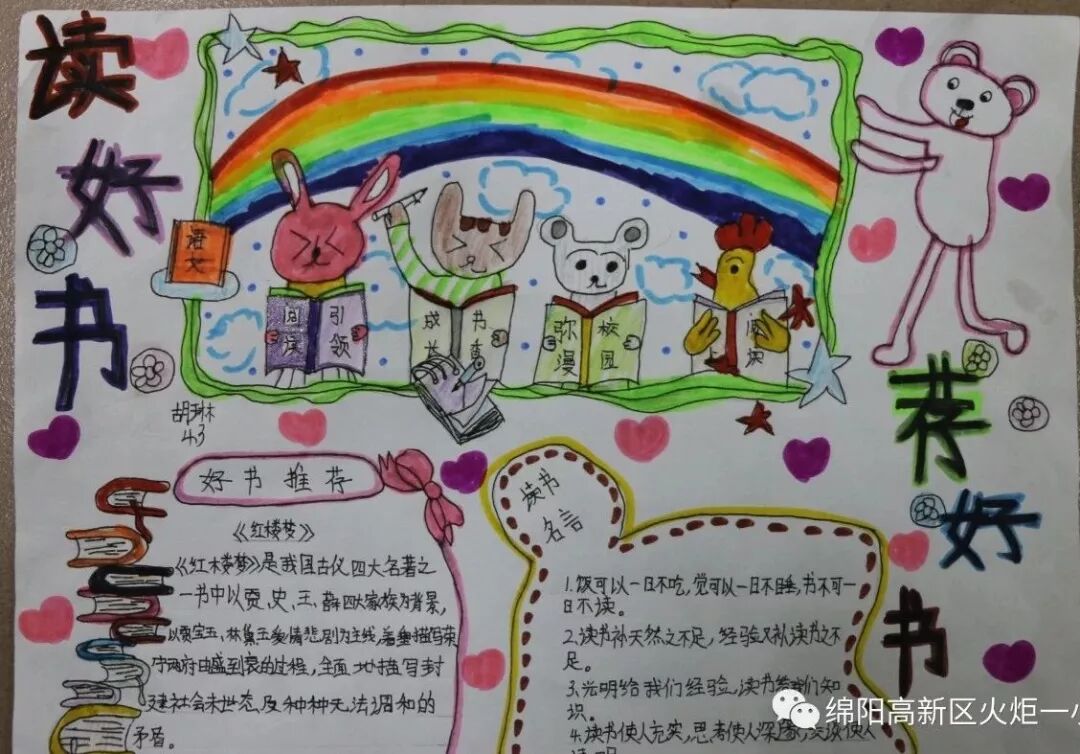 读好书
荐好书
语文
阅读
引领
成长
书香
弥漫
校园
胡琳
4.3
好书推荐
《红楼梦》
《红楼梦》是我国古代四大名著之
一书中以贾、史、王、薛四大家族为背景,
以贾宝玉、林黛玉爱情悲剧为主线,着重描写荣
宁两府由盛到衰的过程,全面地描写封
建社会末世态及种种无法调和的
矛盾。
读书
名言
1.饭可以一日不吃,觉可以一日不睡,书不可一
日不读。
2.读书补天然之不足,经验又补读书之不
足。
3.光明给我们经验,读书给我们知
识。
4.读书使人充实,思考使人深邃,交谈使人
绵阳高新区火炬一小